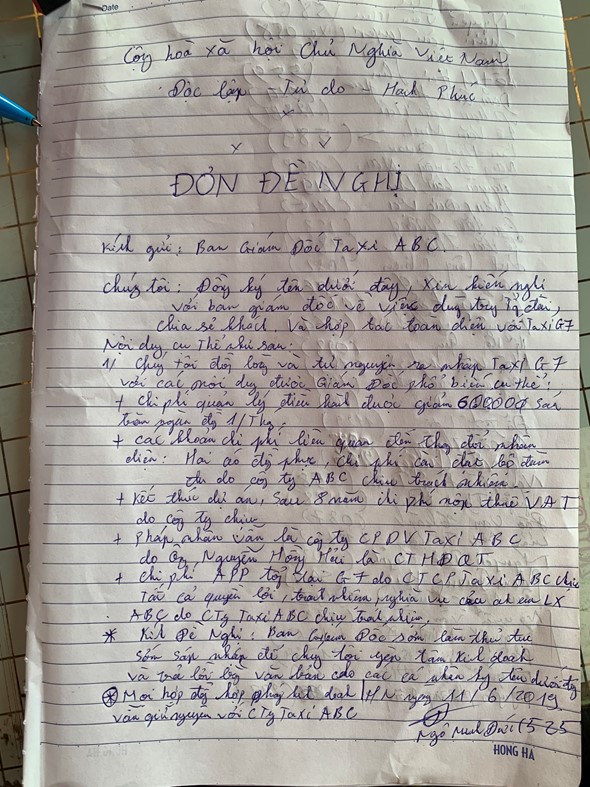 Date
Cộng hoà xã hội Chủ Nghĩa Việt Nam
Độc lập - Tự do - Hạnh Phúc
ĐƠN ĐỀ NGHỊ
Kính gửi: Ban Giám Đốc Taxi ABC.
Chúng tôi: Đồng ký tên dưới đây, Xin kiến nghị
với ban giám đốc về việc duy trì Tổng đài,
chia sẻ khách, và hợp tác toàn diện với Taxi G7
Nội dung cụ thể sau:
1/ Chúng tôi đồng lòng và tự nguyện ra nhập Taxi G7
với các nội dung được Giám Đốc phổ biến cụ thể:
+ Chi phí quản lý, điều hành được giảm 600000 Sáu
trăm ngàn đồng 1/Tháng.
+ các khoản chi phí liên quan đến thay đổi nhận
diện: Hai áo đồng phục, chi phí cài đặt bộ đàm
thì do công ty ABC chịu trách nhiệm.
+ Kết thúc dự án, sau 8 năm chi phí nộp thuế VAT
do công ty chịu
+ Pháp nhân vẫn là công ty CPDV Taxi ABC
do Ông Nguyễn Hồng Hải là CTHĐQT
+ Chi phí APP tổng đài G7 do CTCP Taxi ABC chịu
Tất cả quyền lợi, trách nhiệm, nghĩa vụ của anh em LX
ABC do CTy Taxi ABC chịu trách nhiệm.
* Kính Đề Nghị: Ban Giám Đốc sớm làm thủ tục
sớm sáp nhập để chúng tôi yên tâm kinh doanh
và trả lời bằng văn bản cho các cá nhân ký tên dưới đây
* Mọi hợp đồng hợp pháp kinh doanh HN ngày 11/6/2019
vẫn giữ nguyên với CTy Taxi ABC
Ngô Minh Đức (525
HONG HA